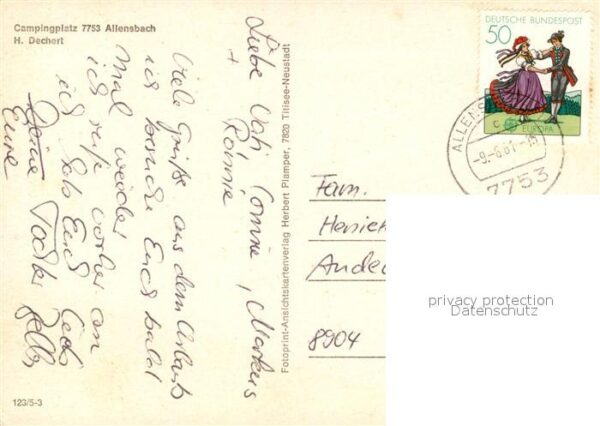 Campingplatz 7753 Allensbach
H. Dechert
Liebe Vati, Connie, Markus
+ Ronnie
Viele Grüße aus dem Urlaub
ich besuche Euch bald
mal wieder
ich rufe vorher an
ich hab Euch lieb
Eure Tochter
Fotoprint-Ansichtskartenverlag Herbert Plamper, 7820 Titisee-Neustadt
123/5-3
DEUTSCHE BUNDESPOST
50
EUROPA
ALLENS
c
-9.-6.81.-15
7753
Fam.
8904
privacy protection
Datenschutz